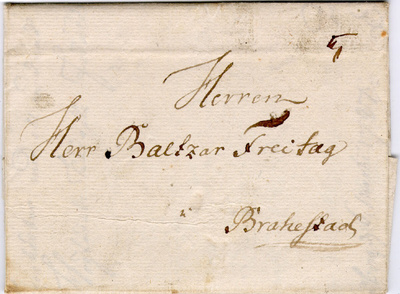 Herren
Herr Baltzar Freitag
Brahestad